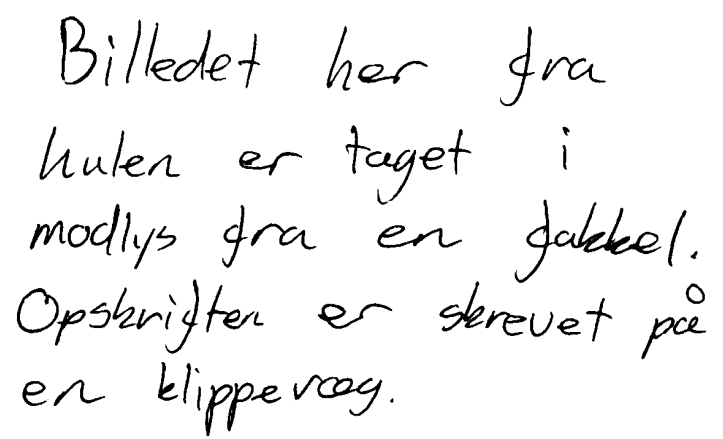 Billedet her fra
hulen er taget i
modlys fra en fakkel.
Opskriften er skrevet på
en klippevæg.